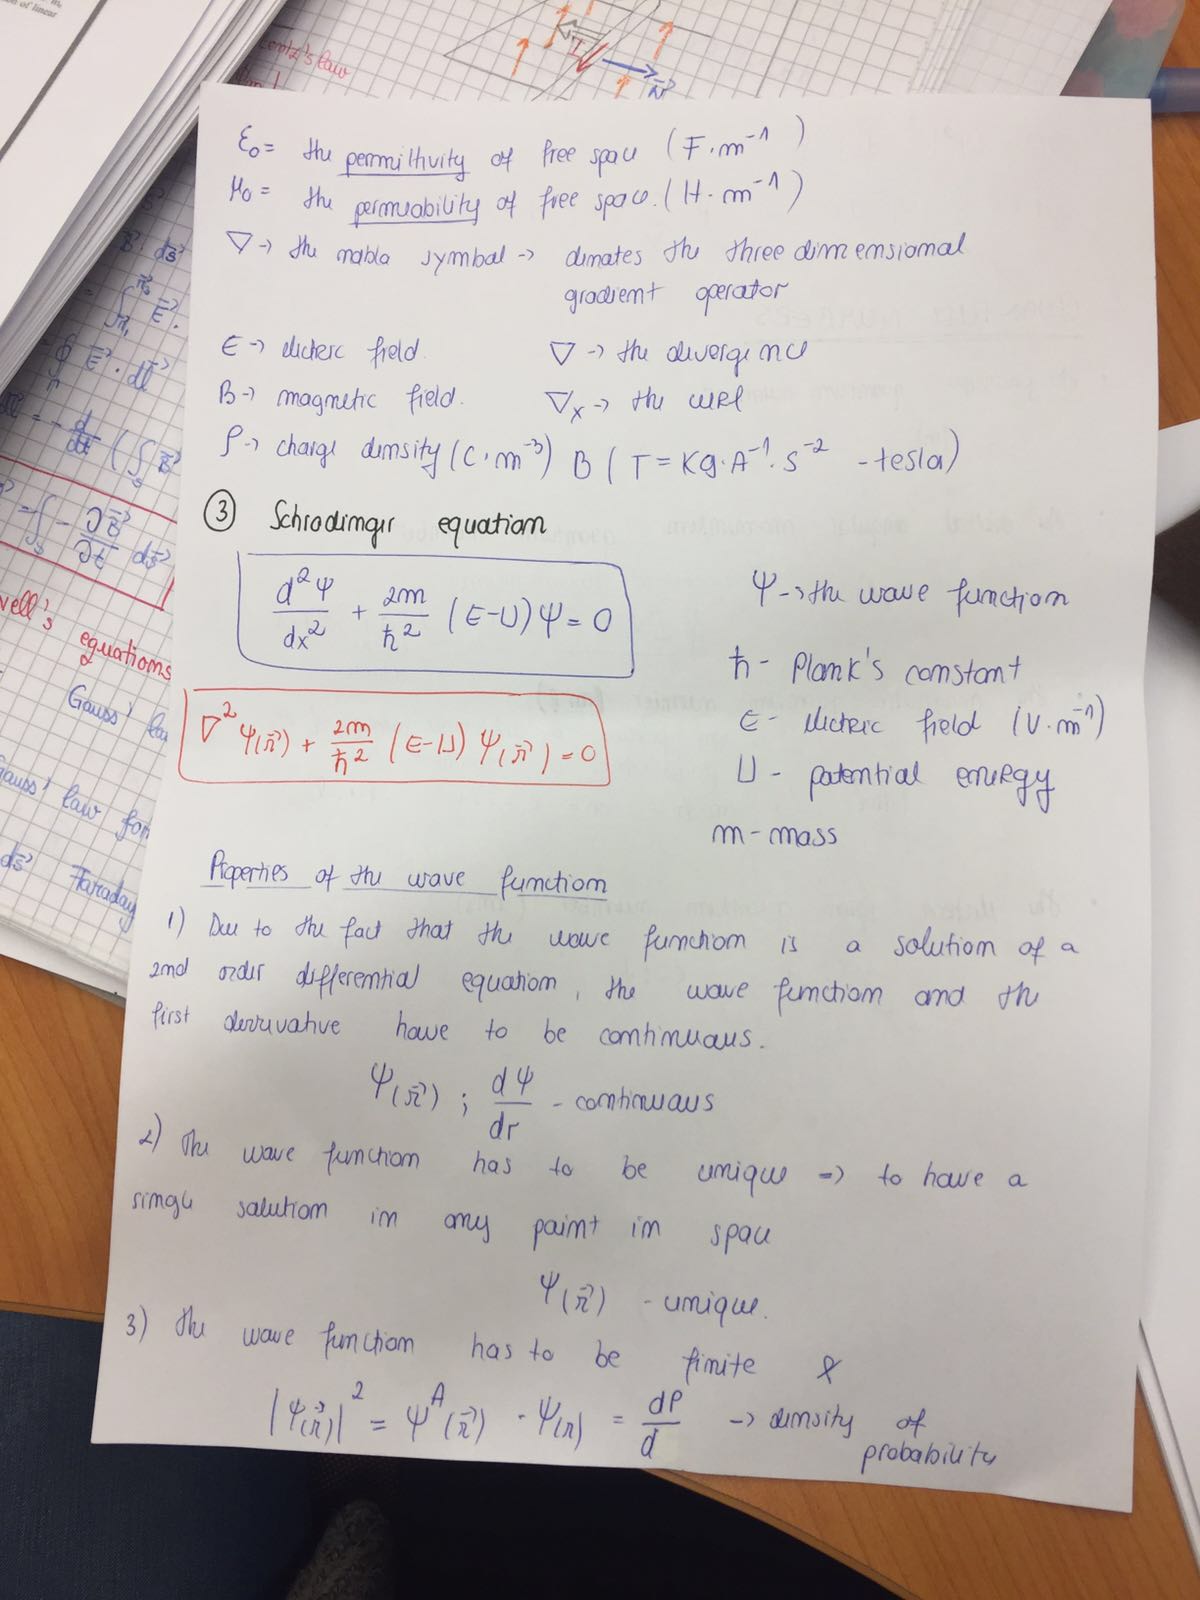 on of linear
entz's law
I
N⃗
ε₀ = the permithvity of free space (F·m⁻¹)
μ₀ = the permeability of free space. (H·m⁻¹)
∇ → the nabla symbol → denotes the three dimensional
gradient operator
E → electric field
∇ → the divergence
B → magnetic field.
∇ₓ → the curl
ρ → charge density (C·m⁻³) B (T = Kg·A⁻¹·S⁻² - tesla)
③ Schrodinger equation
d²Ψ/dx² + 2m/ħ² (E-U)Ψ = 0
Ψ → the wave function
ħ - Plank's constant
∇²Ψ(r⃗) + 2m/ħ² (E-U) Ψ(r⃗) = 0
E - electric field (V·m⁻¹)
U - potential energy
m - mass
Properties of the wave function
1) Due to the fact that the wave function is a solution of a
2nd order differential equation, the wave function and the
first derivative have to be continuous.
Ψ(r⃗) ; dΨ/dr - continuous
2) the wave function has to be unique => to have a
single solution in any point in space
Ψ(r⃗) - unique.
3) the wave function has to be finite &
|Ψ(r⃗)|² = Ψᴬ(r⃗) · Ψ(r) = dP/d → density of
probability
B⃗ ds⃗
E⃗.
∮ E⃗ · dl⃗
= - d/dt (∫ B⃗
= ∫ - ∂B⃗/∂t ds⃗
well's equations
Gauss' la
Gauss' law for
ds⃗ Faraday